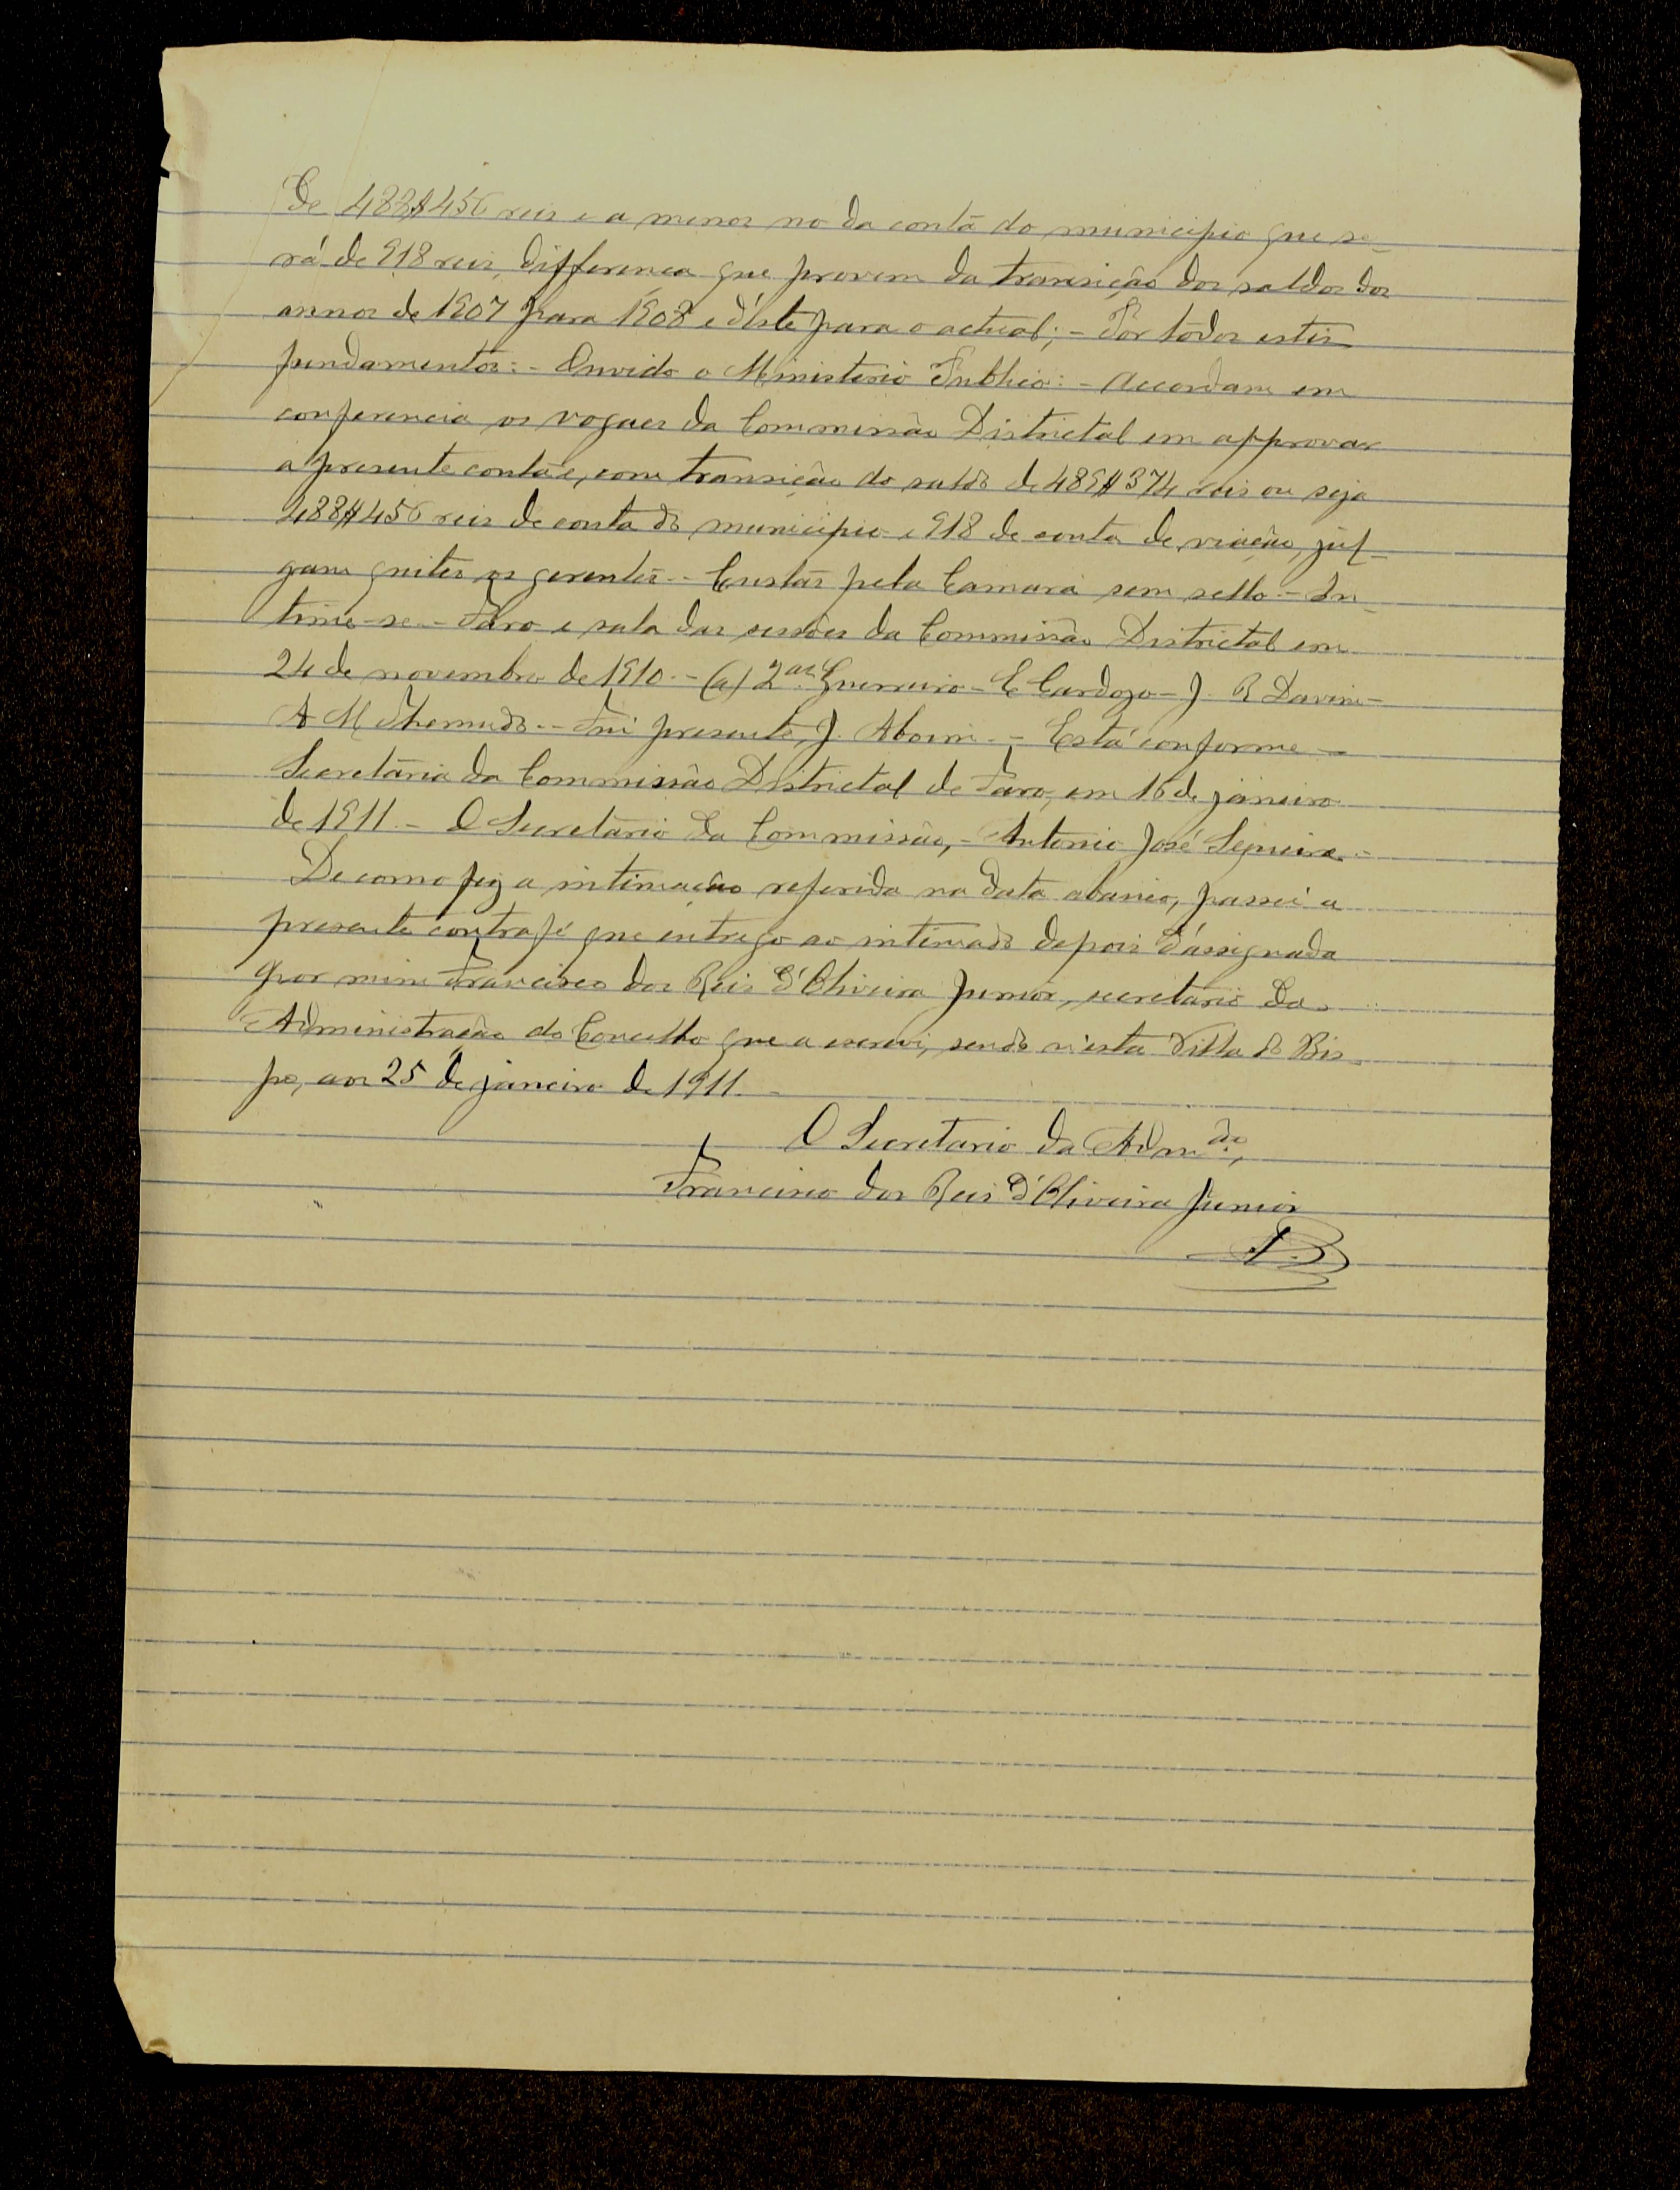 de 488$456 reis e a menos no da conta do municipio que se-
rá de 918 reis, differença que provem da transição dos saldos dos
annos de 1907 para 1908 e d'este para o actual; - Por todos estes
fundamentos: - Ouvido o Ministerio Publico: - Accordam em
conferencia os vogaes da Commissão Districtal em approvar
a presente conta e, com transição do saldo de 489$374 reis ou seja
488$456 reis de conta do municipio e 918 de conta de viação, jul-
gam quites os gerentes. - Custas pela Camara sem sello. - In-
time-se. - Faro e sala das sessões da Commissão Districtal em
24 de novembro de 1910. - (a) Guerreiro - C Cardozo - J. R Davim -
A M Themudo. - Fui presente, J. Aboim. - Está conforme -
Secretaria da Commissão Districtal de Faro, em 16 de janeiro
de 1911. - O Secretario da Commissão, - Antonio José Sequeira. -
De como fiz a intimação referida na data abaixo, passei a
presente contrafé que entrego ao intimado depois d'assignada
por mim Francisco dos Reis d'Oliveira Junior, secretario da
Administração do Concelho que a escrevi, sendo n'esta Villa do Bis-
po, aos 25 de janeiro de 1911. -
O Secretario da Adm.ão,
Francisco dos Reis d'Oliveira Junior